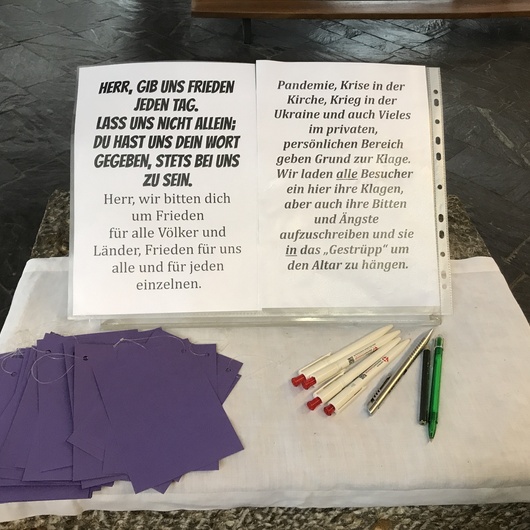 HERR, GIB UNS FRIEDEN
JEDEN TAG.
LASS UNS NICHT ALLEIN;
DU HAST UNS DEIN WORT
GEGEBEN, STETS BEI UNS
ZU SEIN.
Herr, wir bitten dich
um Frieden
für alle Völker und
Länder, Frieden für uns
alle und für jeden
einzelnen.
Pandemie, Krise in der
Kirche, Krieg in der
Ukraine und auch Vieles
im privaten,
persönlichen Bereich
geben Grund zur Klage.
Wir laden alle Besucher
ein hier ihre Klagen,
aber auch ihre Bitten
und Ängste
aufzuschreiben und sie
in das „Gestrüpp“ um
den Altar zu hängen.